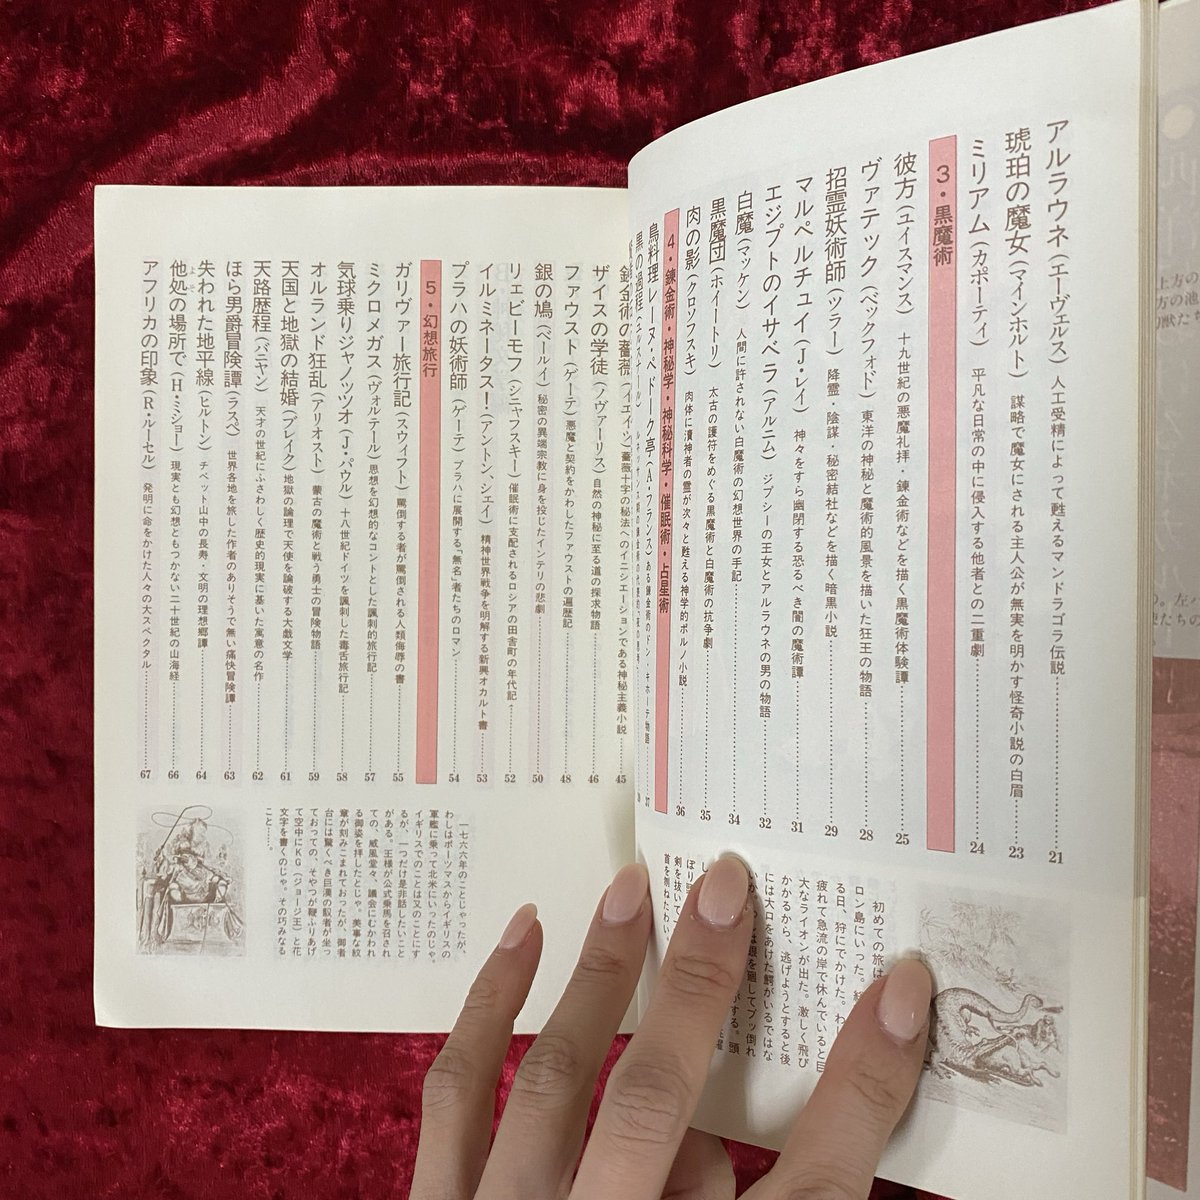 アルラウネ(エーヴェルス) 人工受精によって甦えるマンドラゴラ伝説……21
琥珀の魔女(マインホルト) 謀略で魔女にされる主人公が無実を明かす怪奇小説の白眉……23
ミリアム(カポーティ) 平凡な日常の中に侵入する他者との二重劇……24
3・黒魔術
彼方(ユイスマンス) 十九世紀の悪魔礼拝・錬金術などを描く黒魔術体験譚……25
ヴァテック(ベックフォド) 東洋の神秘と魔術的風景を描いた狂王の物語……28
招霊妖術師(シラー) 降霊・陰謀・秘密結社などを描く暗黒小説……29
マルペルチュイ(J・レイ) 神々をすら幽閉する恐るべき闇の魔術譚……31
エジプトのイサベラ(アルニム) ジプシーの王女とアルラウネの男の物語……32
白魔(マッケン) 人間に許されない白魔術の幻想世界の手記……34
黒魔団(ホイートリ) 太古の護符をめぐる黒魔術と白魔術の抗争劇……35
肉の影(クロソフスキ) 肉体に瀆神者の霊が次々と甦える神学的ポルノ小説……36
4・錬金術・神秘学・神秘科学・催眠術・占星術
鳥料理レーヌ・ペドーク亭(A・フランス) ある錬金術のドン・キホーテ物語……37
黒の過程
錬金術の薔薇(イエイツ) 薔薇十字の秘法へのイニシエーションである神秘主義小説……45
ザイスの学徒(ノヴァーリス) 自然の神秘に至る道の探求物語……46
ファウスト(ゲーテ) 悪魔と契約をかわしたファウストの遍歴記……48
銀の鳩(ベールイ) 秘密の異端宗教に身を投じたインテリの悲劇……50
リェビーモフ(シニャフスキー) 催眠術に支配されるロシアの田舎町の年代記……52
イルミネータス!(アントン、シェイ) 精神世界戦争を明解する新興オカルト書……53
プラハの妖術師(ゲーテ) プラハに展開する「無名」者たちのロマン……54
5・幻想旅行
ガリヴァー旅行記(スウィフト) 罵倒する者が罵倒される人類侮辱の書……55
ミクロメガス(ヴォルテール) 思想を幻想的なコントとした諷刺的旅行記……57
気球乗りジャノッツオ(J・パウル) 十八世紀ドイツを諷刺した毒舌旅行記……58
オルランド狂乱(アリオスト) 蒙古の魔術と戦う勇士の冒険物語……59
天国と地獄の結婚(ブレイク) 地獄の論理で天使を論破する大戯文学……61
天路歴程(バニヤン) 天才の世紀にふさわしく歴史的現実に基いた寓意の名作……62
ほら男爵冒険譚(ラスペ) 世界各地を旅した作者のありそうで無い痛快冒険譚……63
失われた地平線(ヒルトン) チベット山中の長寿・文明の理想郷譚……64
他処の場所で(H・ミショー) 現実とも幻想ともつかない二十世紀の山海経……66
アフリカの印象(R・ルーセル) 発明に命をかけた人々の大スペクタル……67
初めての旅は
ロン島にいった。
る日、狩にでかけた。
疲れて急流の岸で休んでいると巨
大なライオンが出た。激しく飛び
かかるから、逃げようとすると後
には大口をあけた鰐がいるではな
いか
は眼を廻してブッ倒れ
がする。頭
剣を抜いて
首を刎ねたわい
一七六六年のことじゃったが、
わしはポーツマスからイギリスの
軍艦に乗って北米にいったのじゃ。
イギリスでのことは又のことにす
るが、一つだけ是非話したいこと
がある。王様が公式乗馬を召され
ての、威風堂々、議会にむかわれ
る御姿を拝したとじゃ。美事な紋
章が刻みこまれておったが、御者
台には驚くべき巨漢の馭者が坐っ
ておっての、そやつが鞭ふりあげ
て空中にKG(ジョージ王)と花
文字を書くのじゃ。その巧みなる
こと……